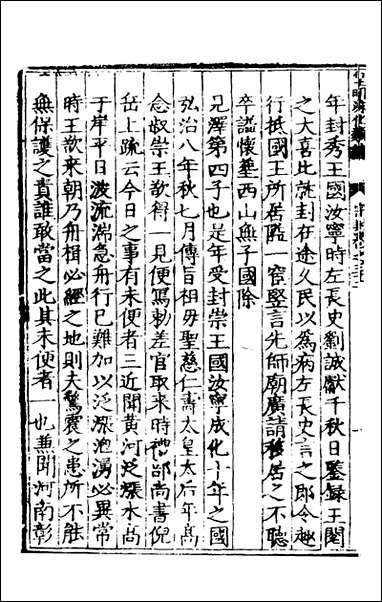 年封秀王國汝寧時左長史劉誠獻千秋日鑒録王閱
之大喜比就封在途久民以為病左長史言之即令趣
行抵國王所居臨一窖竪言先師廟廣請移居之不聽
卒謚懷墓西山無子國除
兄澤第四子也是年受封崇王國汝寧成化十年之國
弘治八年秋七月傳旨祖毋聖慈仁壽太皇太后年髙
念叔崇王欲得一見便寫勅差官取来時禮部尚書倪
岳上疏云今日之事有未便者三近聞黄河泛漲水尚
于岸平日波流湍急舟行已難加以泛漲洶湧必異常
時王欲来朝乃舟楫必經之地則夫驚震之患所不能
無保護之責誰敢當之此其未便者一也兼聞河南彰